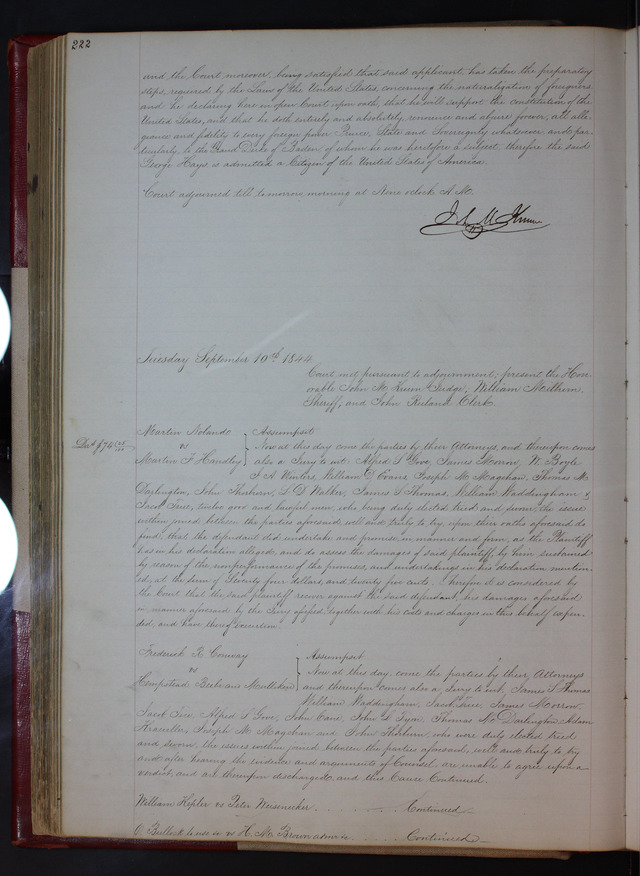 222
and the Court moreover, being satisfied that said applicant has taken the preparatory
steps, required by the Laws of the United States, concerning the naturalization of foreigners
and he declaring here in open Court upon oath, that he will support the constitution of the
United States, and that he doth entirely and absolutely, renounce and abjure forever, all alle-
giance and fidelity to every foreign power Prince, State and Sovereignty whatsoever and par-
ticularly to the Grand Duke of Baden of whom he was heretofore a subject, therefore the said
George Hays is admitted a Citizen of the United States of America.
Court adjourned till tomorrow morning at Nine o'clock A.M.
John M Krum
Tuesday September 10th 1844
Court met pursuant to adjournment; present the Hon-
orable John M. Krum Judge, William Milburn
Sheriff, and John Ruland Clerk
Martin Nolands } Assumpsit
vs Now at this day come the parties by their Attorneys, and thereupon comes
Dr $74 25/100
Martin F Handley also a Jury to wit: Alfred S Gove, James Morrow, W. Boyle
William D Evans Joseph M. Magehan, Thomas M.
Darlington, John Thirburn, S D Walker, James S Thomas, William Waddingham &
Jacob Tice, twelve good and lawful men, who being duly elected tried and sworn, the issue
within joined between the parties aforesaid, well and truly to try, upon their oaths aforesaid do
find, that the defendant did undertake and promise, in manner and form, as the Plaintiff
has in his declaration alleged, and do assess the damages of said plaintiff, by him sustained
by reason of the nonperformance of the promises, and undertakings in his declaration mention-
ed, at the sum of Seventy four dollars, and twenty five cents. Therefore it is considered by
the Court that the said plaintiff recover against the said defendant, his damages aforesaid
in manner aforesaid by the Jury assessed, together with his costs and charges in this behalf expen-
ded, and have thereof execution.
Frederick R Conway } Assumpsit
vs Now at this day, come the parties by their Attorneys
Hempstead Mulliken and thereupon comes also a Jury to wit, James S Thomas
William Waddingham, Jacob Tice, James Morrow,
Jacob Tice, Alfred S Gove, John Cave, John D Tym, Thomas M Darlington, Adam
Joseph M. Magehan and John Thirburn, who were duly elected tried
and sworn, the issues within joined between the parties aforesaid, well and truly to try
and after hearing the evidence and arguments of Counsel, are unable to agree upon a
verdict, and are thereupon discharged, and this Cause Continued.
William Hepler vs Peter Weisenecker. . . . . Continued
Bullock to use &c vs H. M. Brown admr &c. . . . . Continued